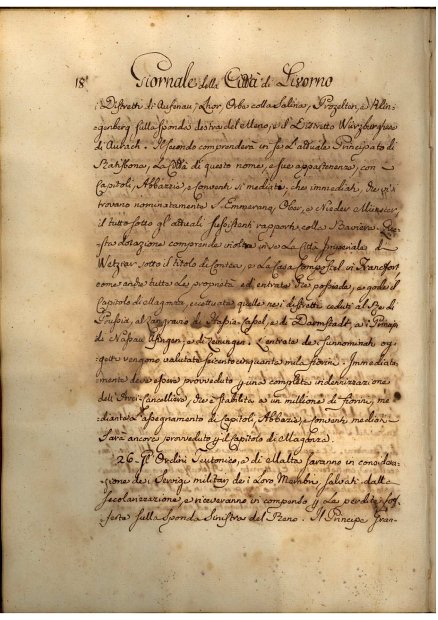 18 Giornale della Città di Livorno
i Distretti di Aufenau, Lhor, Orba colla Salina, Prozelten, e Klin-
genberg sulla sponda destra del Meno, e il Distretto Würzburghese
di Aubach. Il secondo comprenderà in se l'attuale Principato di
Ratisbona, la Città di questo nome, e sue appartenenze, con
Capitoli, Abbazie, e Conventi sì mediati, che immediati, che vi si
trovano nominatamente S. Emmerano, Ober, e Nieder Münster,
il tutto sotto gl'attuali sussistenti rapporti colla Baviera. Que-
sta dotazione comprende inoltre in se la Città Imperiale di
Wetzlar sotto il titolo di Contea, e la Casa Compostel in Francfort
come anche tutte le proprietà ed entrate che possede, e gode il
Capitolo di Magonza, eccettuate quelle nei distretti ceduti al Re di
Prussia, al Langravio di Hassia-Cassel, e di Darmstadt, a' Principi
di Nassau Usingen, e di Leiningen. L'entrate de i sunnominati og-
getti vengono valutate seicentocinquanta mila fiorini. Immediata-
mente dev'essere provveduto p. una completa indennizzazione
dell'Arci-Cancelliere, che è stabilita a un millione di fiorini, me-
diante l'assegnamento di Capitoli, Abbazie, e Conventi mediati.
Sarà ancora provveduto p. il Capitolo di Magonza.
26. Gl'Ordini Teutonico, e di Malta saranno in considera-
zione de i Servigi militari de i loro Membri, salvati dalla
secolarizzazione, e riceveranno in compenso p. le perdite sof-
ferte sulla sponda sinistra del Reno. Il Principe Gran-